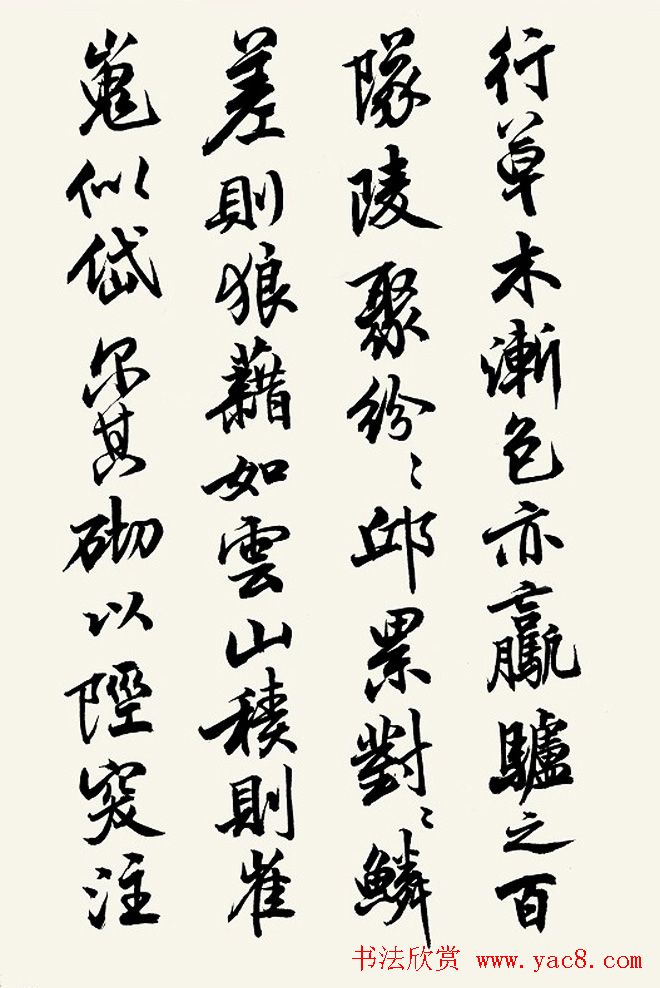 行草木漸色亦贏驢之百
隊陵聚紛〻邱累對〻鱗
差則狼藉如雲山積則崔
嵬似岱尔其砌以陘窔注
书法欣赏 www.yac8.com